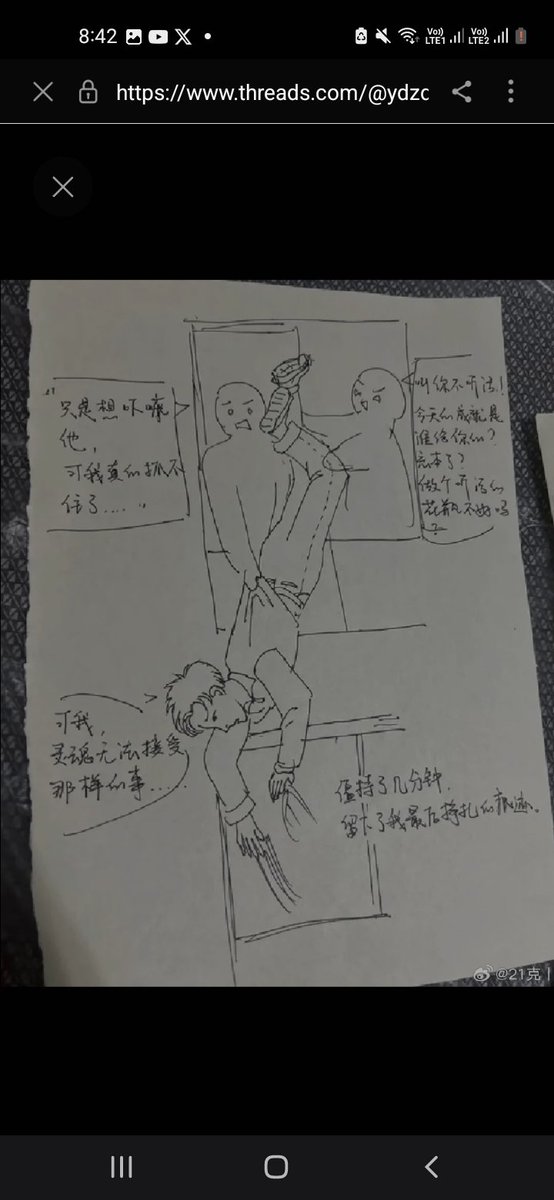 8:42
Vo))
LTE1
Vo))
LTE2
https://www.threads.com/@ydzc
"只是想吓唬
他，
可我真的抓不
住了……"
叫你不听话！
今天的成就是
谁给你的？
忘本了？
做个听话的
花瓶不好吗
？
可我，
灵魂无法接受
那样的事……
僵持了几分钟，
留下了我最后挣扎的痕迹。
@21克